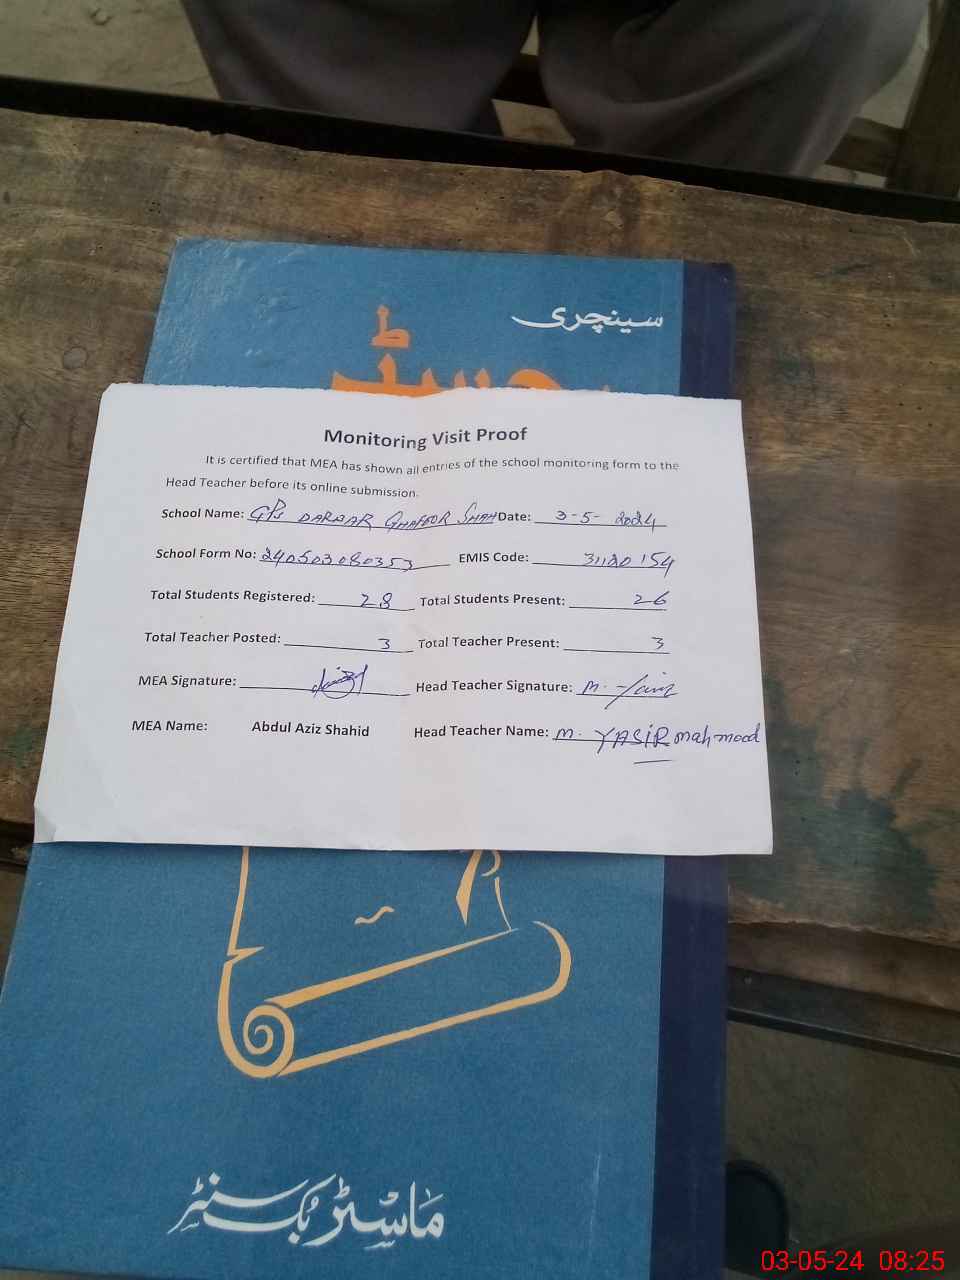 سینچری
Monitoring Visit Proof
It is certified that MEA has shown all entries of the school monitoring form to the
Head Teacher before its online submission.
School Name: GPS DARBAR GHAFOOR SHAH Date: 3-5-2024
School Form No: 240503080353 EMIS Code: 31120154
Total Students Registered: 28 Total Students Present: 26
Total Teacher Posted: 3 Total Teacher Present: 3
MEA Signature: Head Teacher Signature: M. Yasir
MEA Name: Abdul Aziz Shahid Head Teacher Name: M. YASIR mahmood
ماسٹر بک سنٹر
03-05-24 08:25